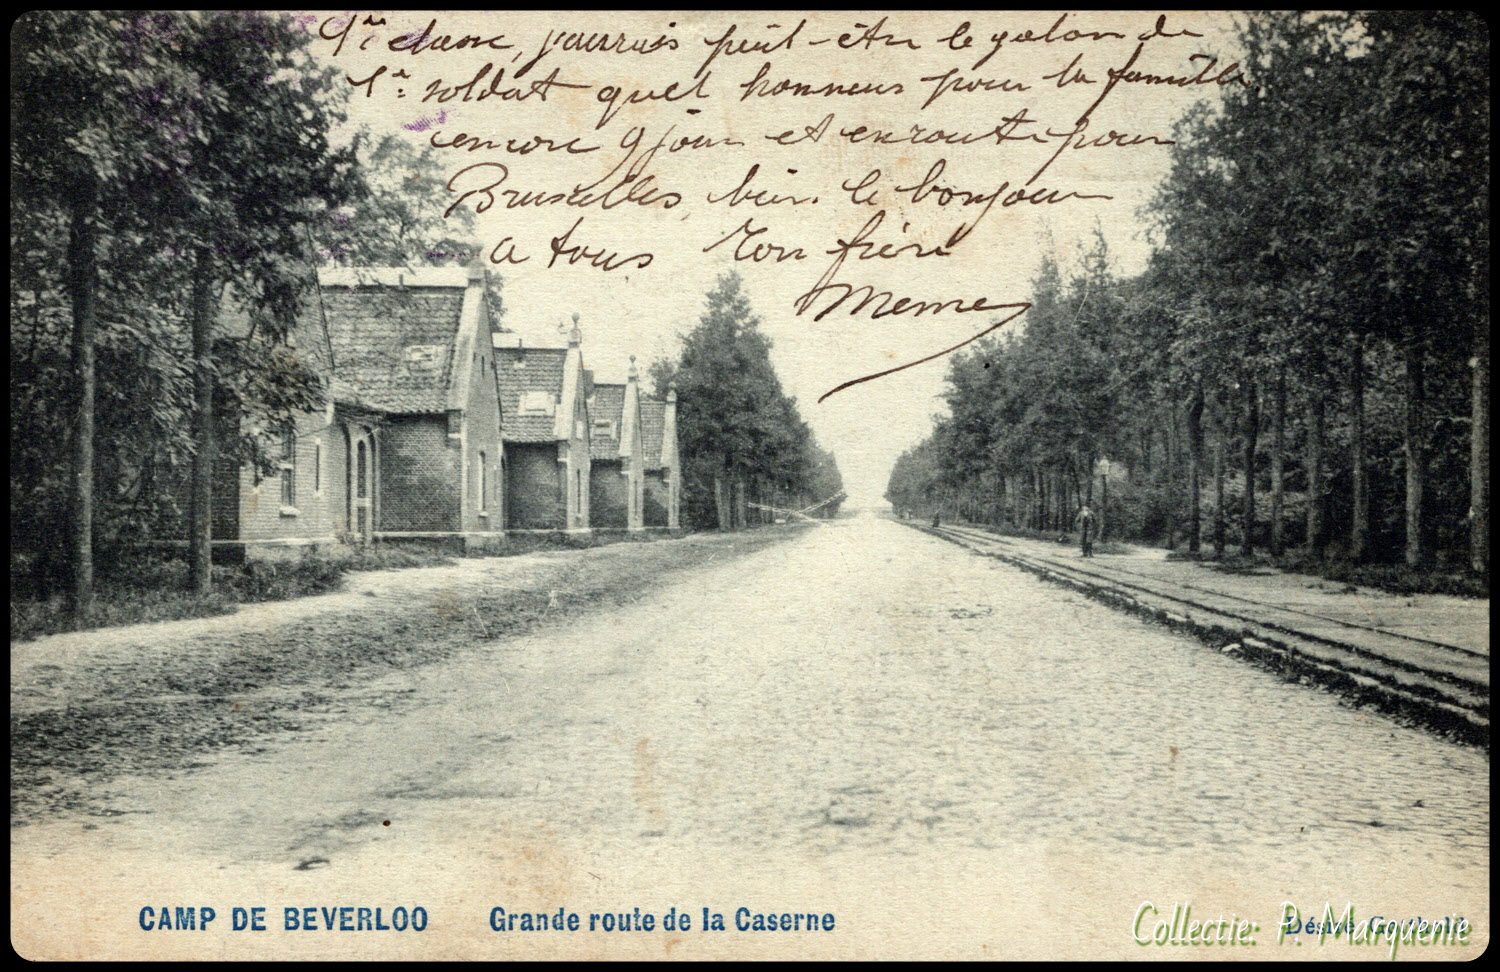 1re classe, j'aurrais peût-être le galon de
1e soldat quel honneur pour la famille
encore 9 jours et en route pour
Bruxelles, bien le bonjour
a tous Ton frère
Meme
CAMP DE BEVERLOO Grande route de la Caserne
Désiré
Collectie: P. Marquenie